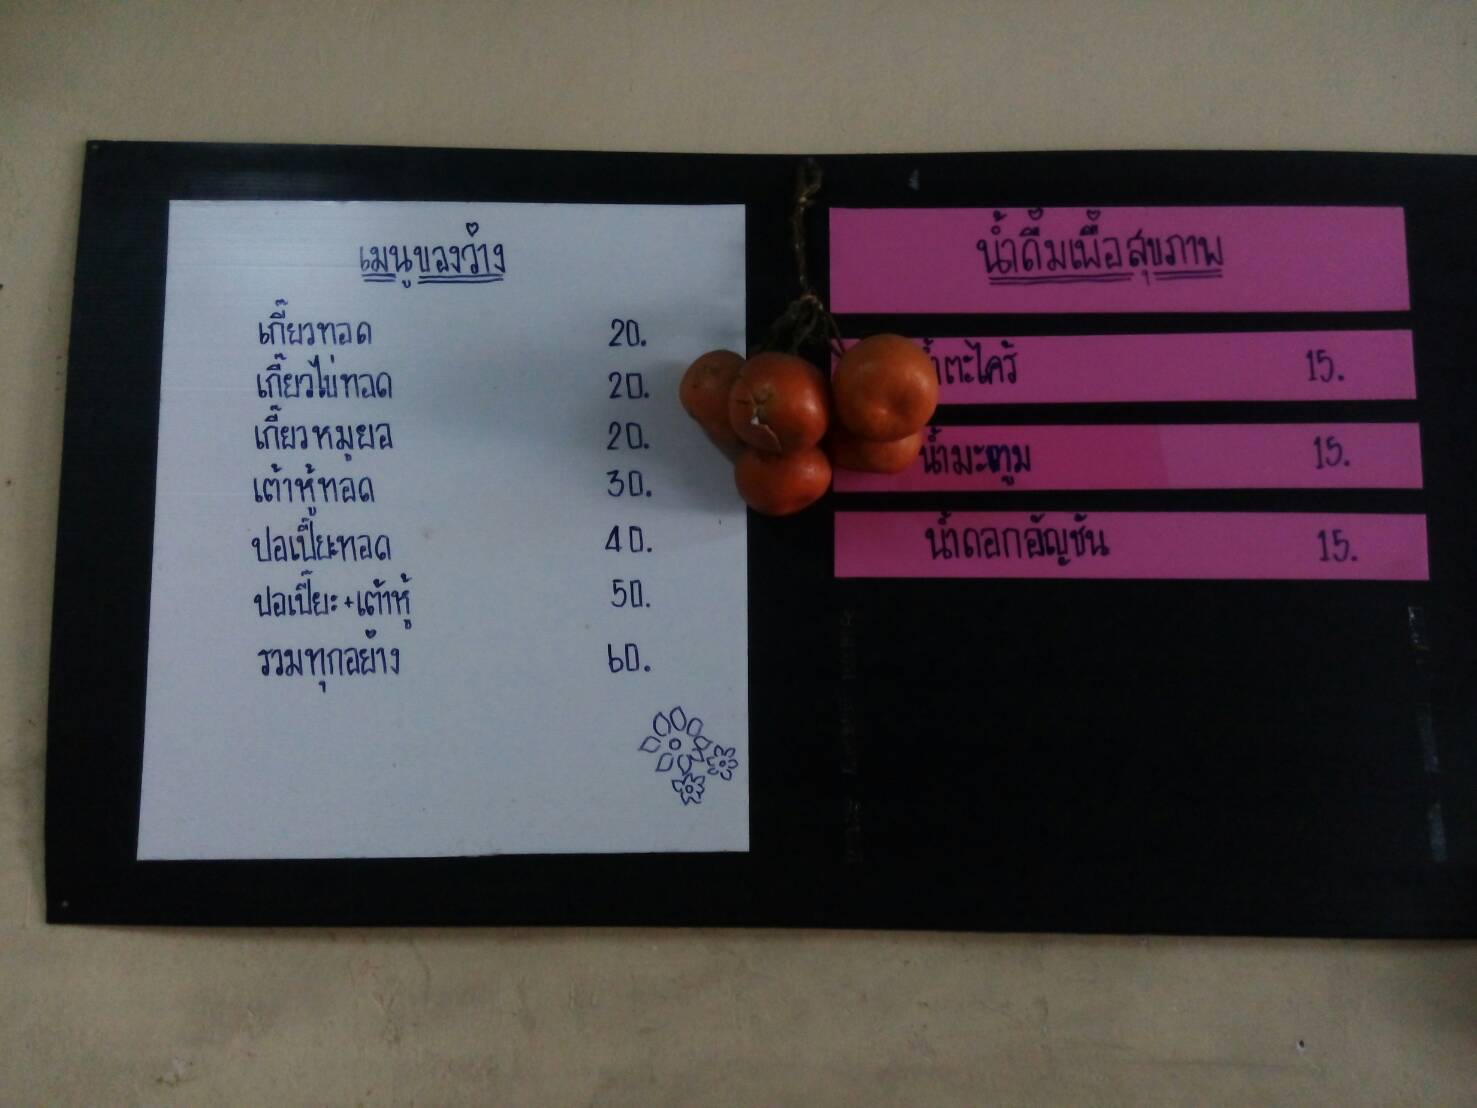 เมนูของว่าง
เกี๊ยวทอด 20.
เกี๊ยวไข่ทอด 20.
เกี๊ยวหมูยอ 20.
เต้าหู้ทอด 30.
ปอเปี๊ยะทอด 40.
ปอเปี๊ยะ+เต้าหู้ 50.
รวมทุกอย่าง 60.
น้ำดื่มเพื่อสุขภาพ
น้ำตะไคร้ 15.
น้ำมะตูม 15.
น้ำดอกอัญชัน 15.